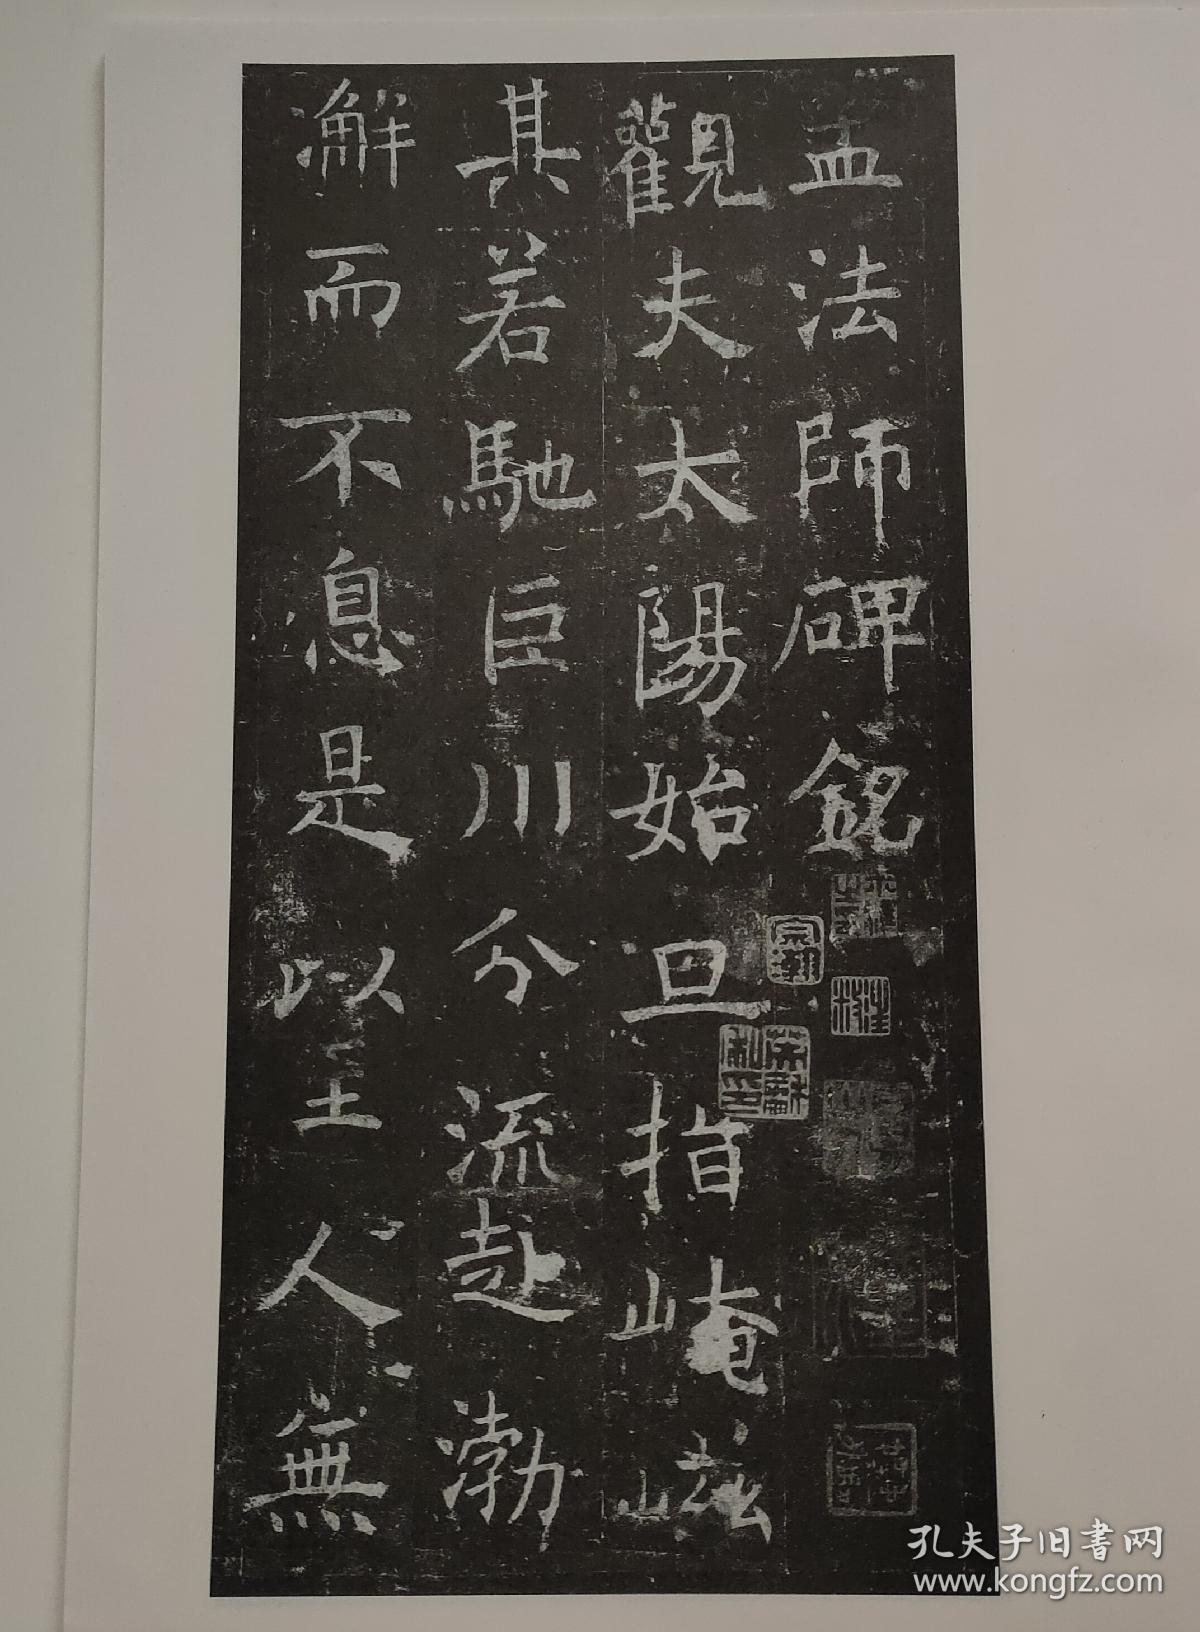 孟法師碑銘
觀夫太陽始旦指崦嵫
其若馳巨川分流赴渤
澥而不息是以至人無
孔夫子旧书网
www.kongfz.com